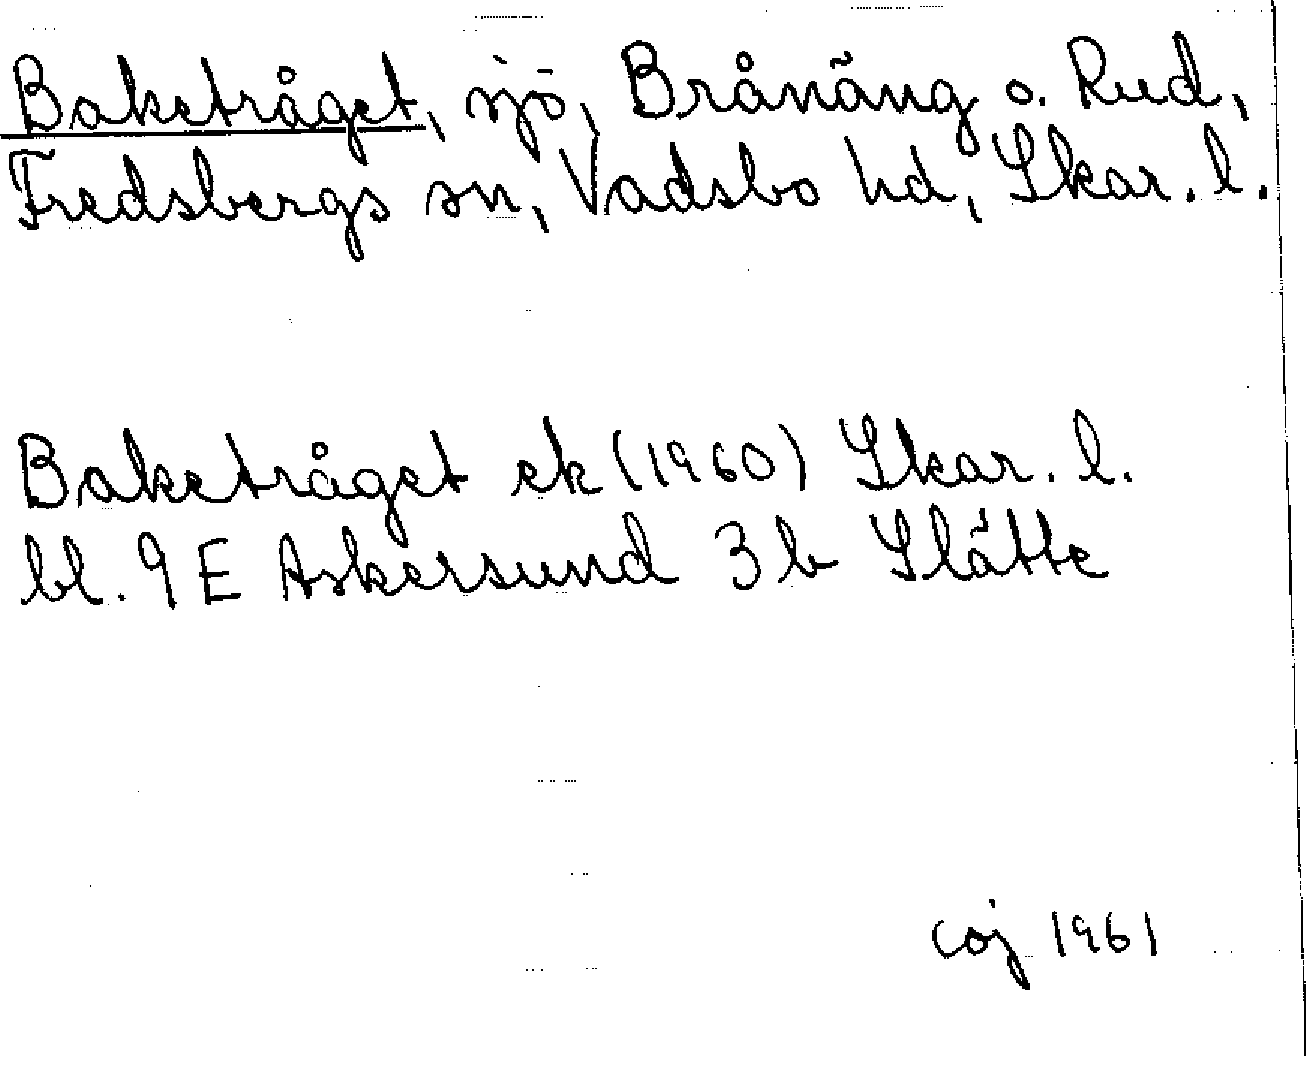 Baketråget, sjö, Brånäng o. Rud,
Fredsbergs sn, Vadsbo hd, Skar. l.
Baketråget ek (1960) Skar. l.
bl. 9 E Askersund 3 b Slätte
coj 1961